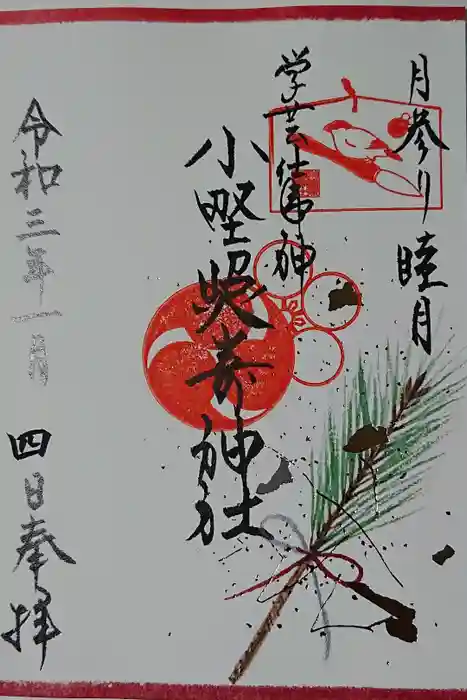 月参り 睦月
学芸の神
小野照崎神社
令和三年一月
四日奉拝